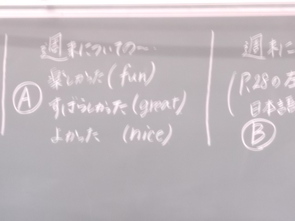 週末についての…
楽しかった(fun)
Ⓐ すばらしかった(great)
よかった (nice)
週末に
(P.28の
日本語
Ⓑ